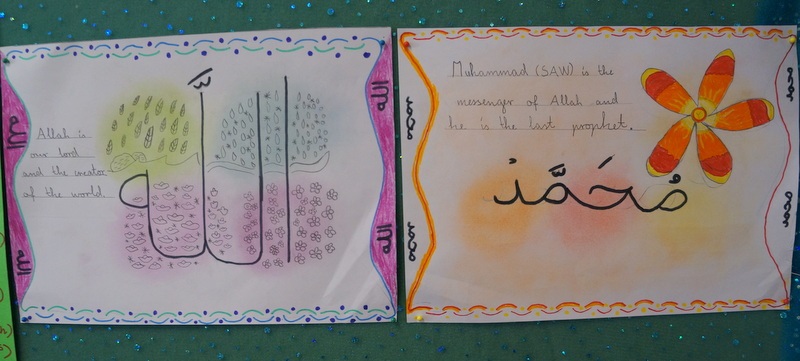 Allah is
our lord
and the creator
of the world.
الله
الله
الله
الله
الله
Muhammad (SAW) is the
messenger of Allah and
he is the last prophet.
مُحَمَّد
محمد
محمد
محمد
محمد